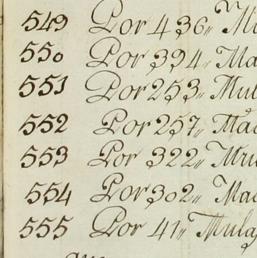 549 Por 436,, Mu
550 Por 394,, Ma
551 Por 253,, Mul
552 Por 257,, Mac
553 Por 322,, Mu
554 Por 302,, Mac
555 Por 41,, Mula